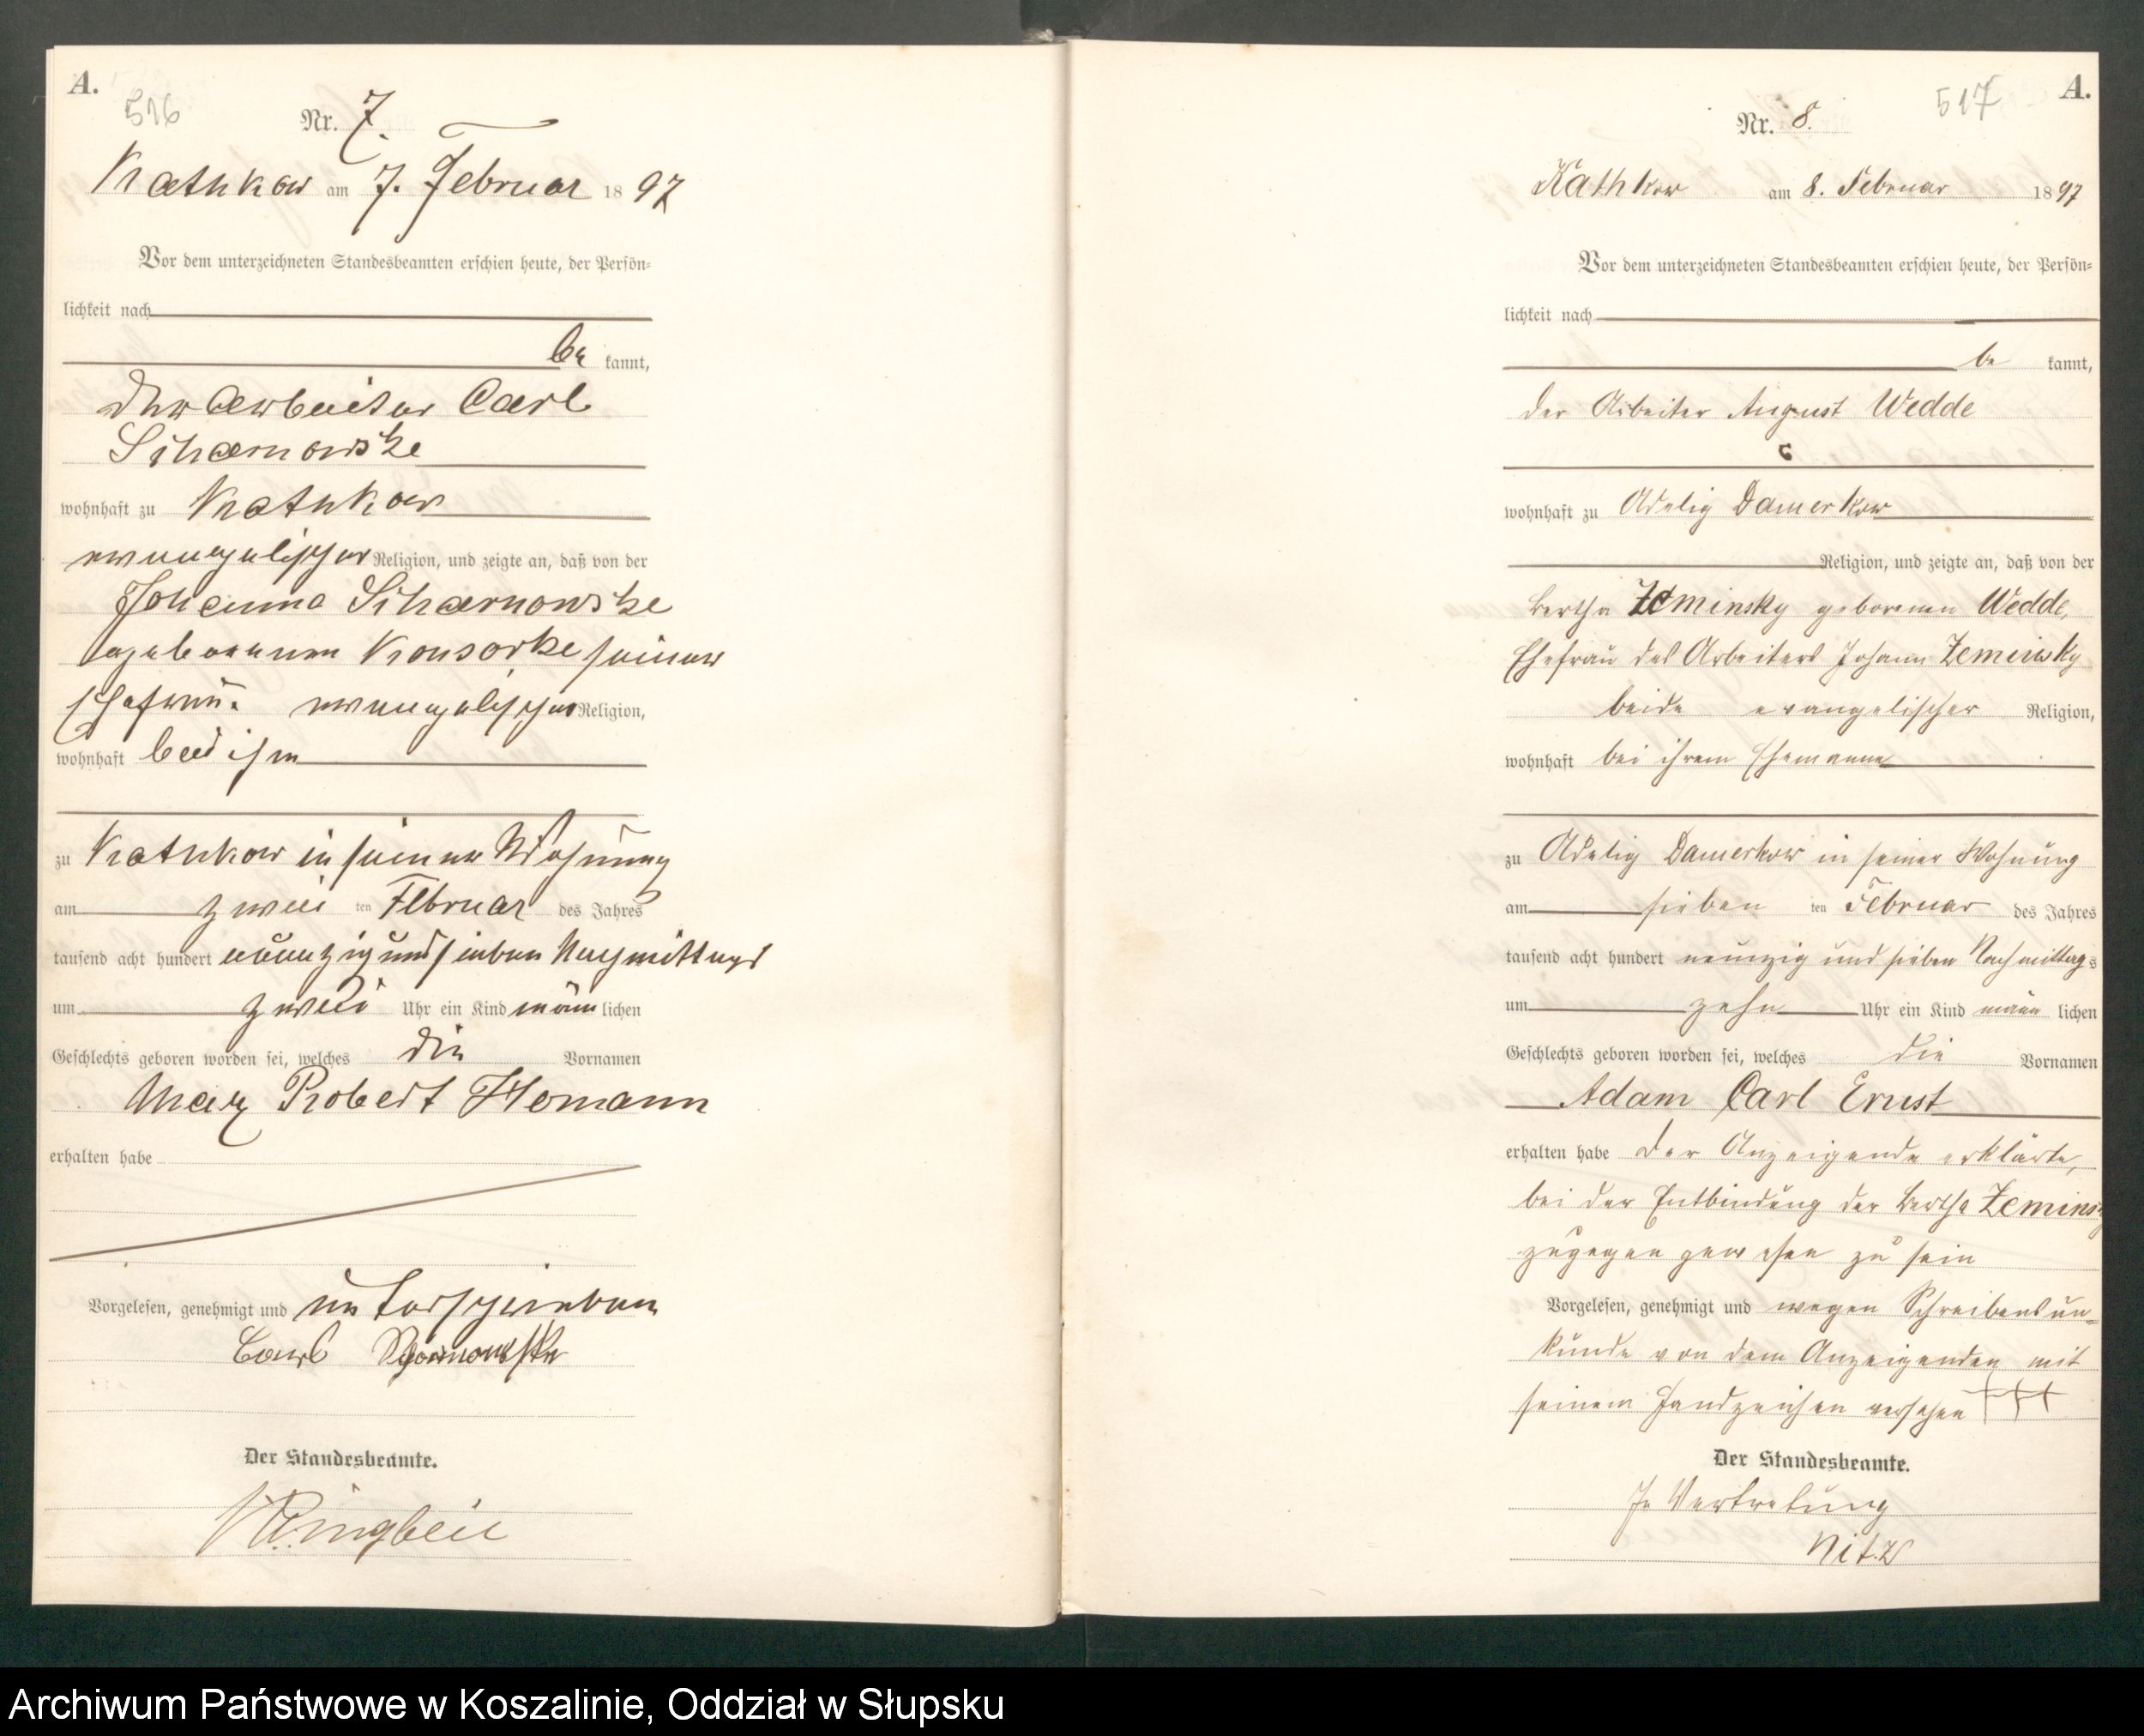 A.
516
Nr. 7.
Rathkow am 7. Februar 1897
Vor dem unterzeichneten Standesbeamten erschien heute, der Persön-
lichkeit nach
be kannt,
der Arbeiter Carl
Scharnowske
wohnhaft zu Rathkow
evangelischer Religion, und zeigte an, daß von der
Johanna Scharnowske
geborenen Ronsorke seiner
Ehefrau. evangelischer Religion,
wohnhaft bei ihm
zu Rathkow in seiner Wohnung
am zwei ten Februar des Jahres
tausend acht hundert neunzig und sieben Nachmittags
um zwei Uhr ein Kind männlichen
Geschlechts geboren worden sei, welches die Vornamen
Max Robert Hemann
erhalten habe
Vorgelesen, genehmigt und unterschrieben
Carl Scharnowske
Der Standesbeamte.
A.
517
Nr. 8.
Rathkow am 8. Februar 1897
Vor dem unterzeichneten Standesbeamten erschien heute, der Persön-
lichkeit nach
be kannt,
der Arbeiter August Wedde
wohnhaft zu Adelig Damerkow
Religion, und zeigte an, daß von der
Bertha Zeminsky geborenen Wedde,
Ehefrau des Arbeiters Johann Zeminsky
beide evangelischer Religion,
wohnhaft bei ihrem Ehemanne
zu Adelig Damerkow in seiner Wohnung
am sieben ten Februar des Jahres
tausend acht hundert neunzig und sieben Nachmittags
um zehn Uhr ein Kind männlichen
Geschlechts geboren worden sei, welches die Vornamen
Adam Carl Ernst
erhalten habe der Anzeigende erklärte,
bei der Entbindung der Bertha Zeminsky
zugegen gewesen zu sein
Vorgelesen, genehmigt und wegen Schreibensun-
kunde von dem Anzeigenden mit
seinem Handzeichen versehen +++
Der Standesbeamte.
In Vertretung
Nitz
Archiwum Państwowe w Koszalinie, Oddział w Słupsku